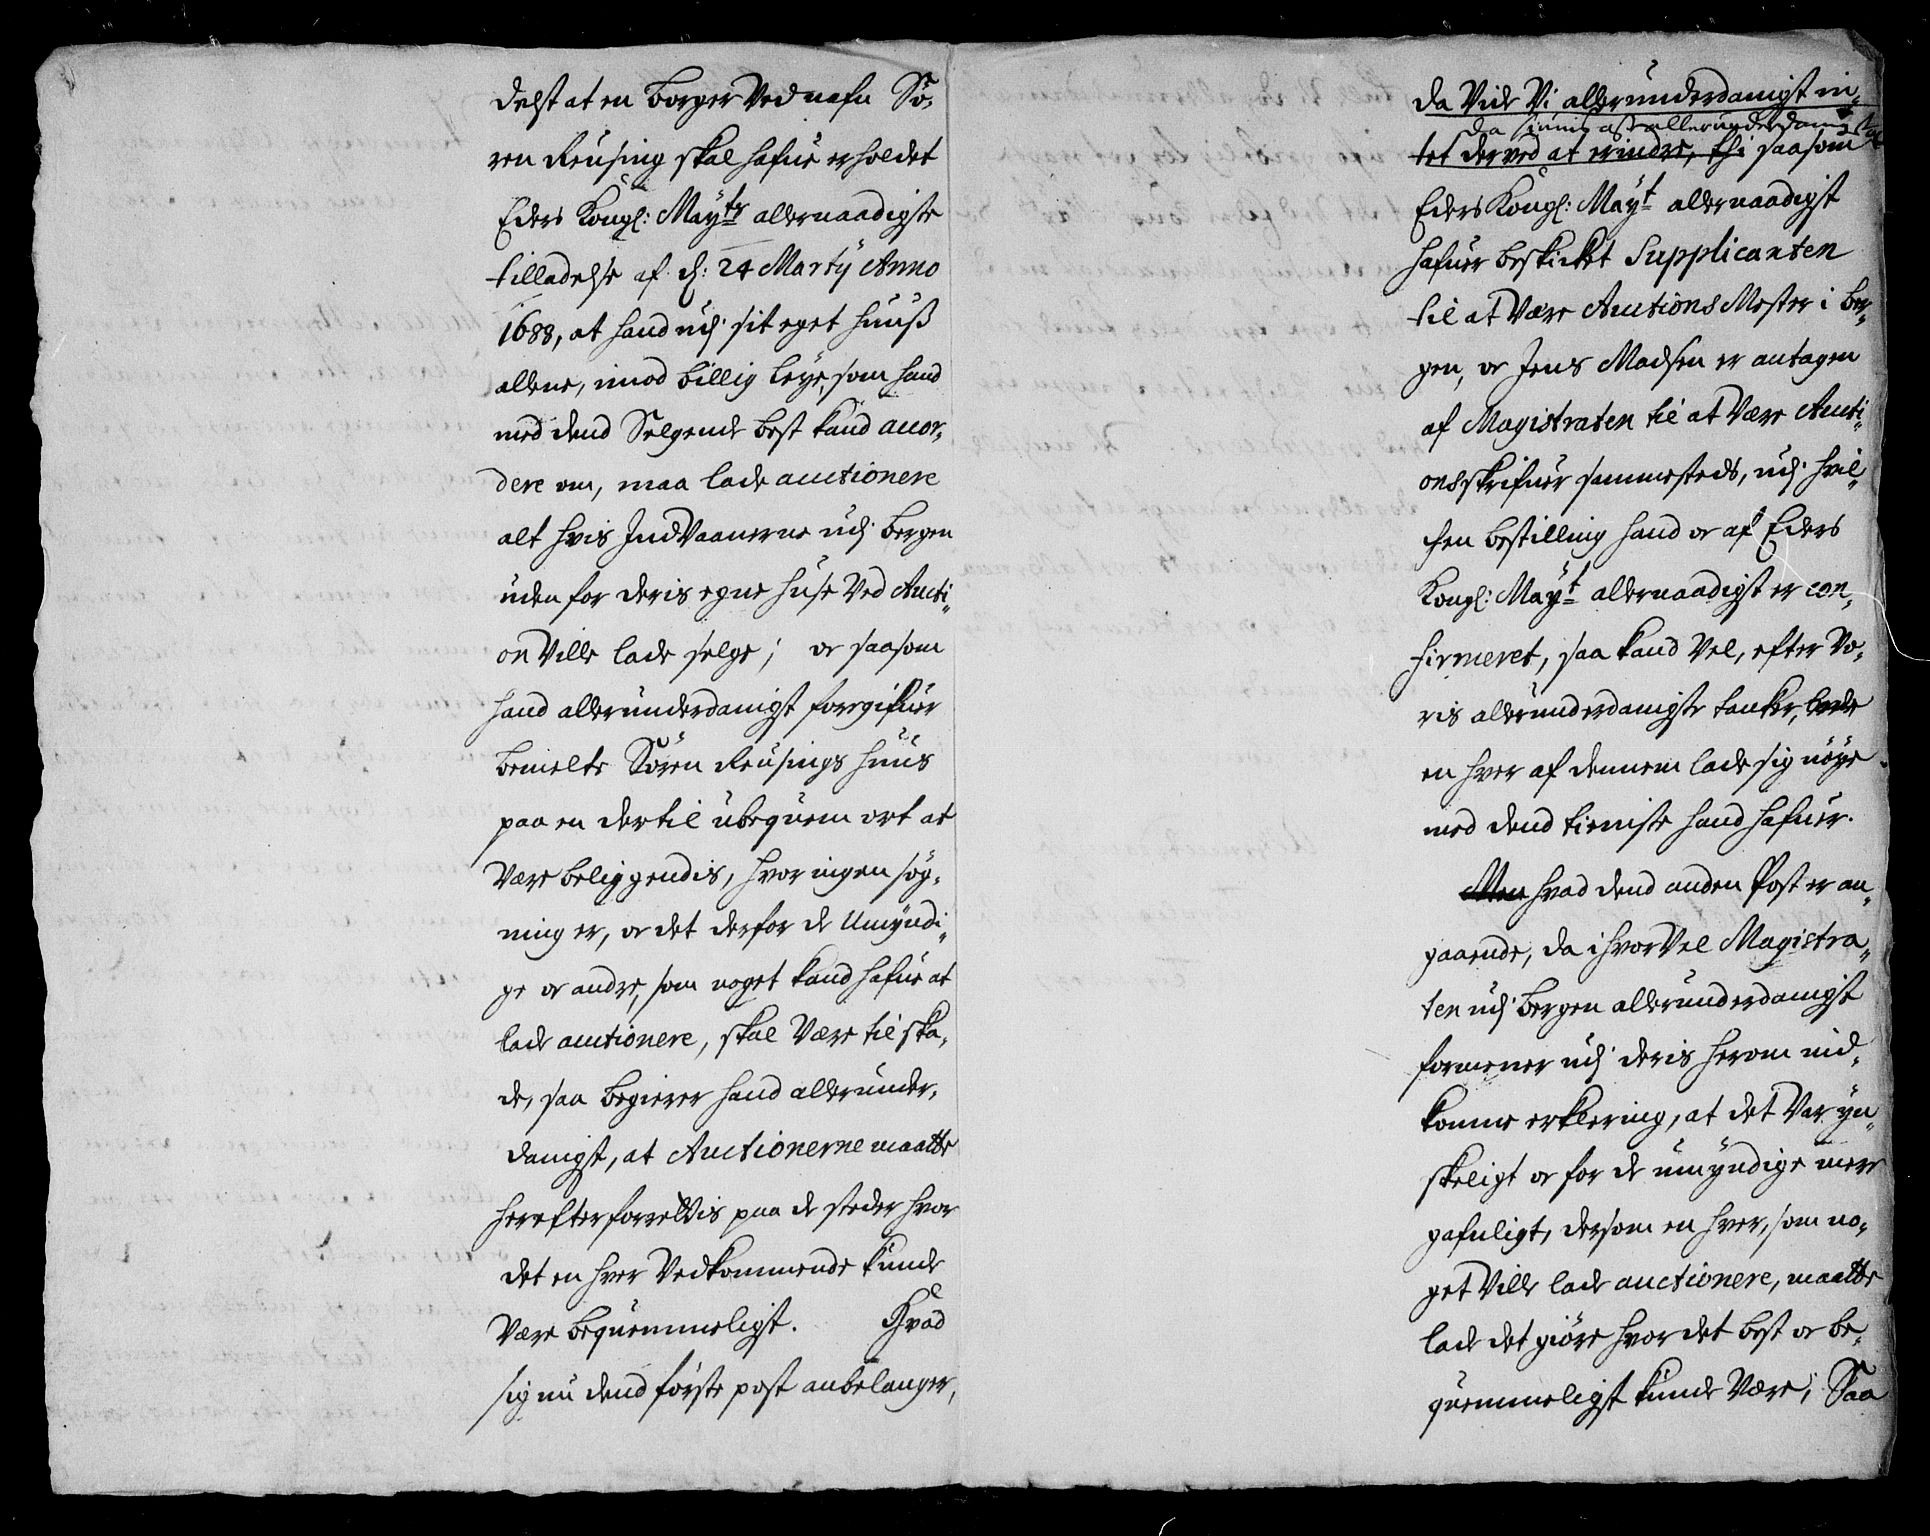 delst at en borger Ved nafn Sö„
ren Reusing skal hafue erholdet
Eders Kongl: Mayts allernaadigste
tilladelse af d: 24 Martÿ Anno
1688, at hand udj sit eget huuß
allene, imod billig leye, som hand
med dend Selgende best kand accor„
dere om, maa lade auctionere
alt hvis IndVaanerne udj Bergen
uden for deris egne huse Ved Aucti„
on Ville lade selge; oc saasom
hand allerunderdanigst foregifuer
bemelte Sören Reusings huus
paa en dertil ubequem ort at
Være beliggendis, hvor ingen søg„
ning er, oc det derfor de Umÿndi„
ge oc andre, som noget kand hafue at
lade auctionere, skal Være til ska„
de, saa begierer hand allerunder„
danigst, at Auctionerne maatte
herefter forrettis paa de steder hvor
det en hver Vedkommende kunde
Være bequemmeligst. Hvad
sig nu dend förste post anbelanger,
da Vide Vi allerunderdanigst in„
da allerunderdanigst
tet derved at erindre, thi saasom
Eders Kongl: Mayt allernaadigst
hafuer beskicket Supplicanten
til at Være AuctionsMester i Ber„
gen, oc Jens Madsen er antagen
af Magistraten til at Være Aucti„
onsskrifuer sammesteds, udj hvil„
chen bestilling hand oc af Eders
Kongl: Mayt allernaadigst er con„
firmeret, saa kand Vel, efter Vo„
ris allerunderdanigste tanker,
en hver af dennem lade sig nöÿe
med dend tieniste hand hafuer.
Men hvad dend anden Post er an„
gaaende, da ihvorVel Magistra„
ten udj Bergen allerunderdanigst
formener udj deris herom ind„
komne erklering, at det Var ÿn„
skeligt oc for de umÿndige mere
gafnligt, dersom en hver, som no„
get Ville lade auctionere, maatte
lade det giöre hvor det best oc be„
quemmeligst kunde Være; Saa